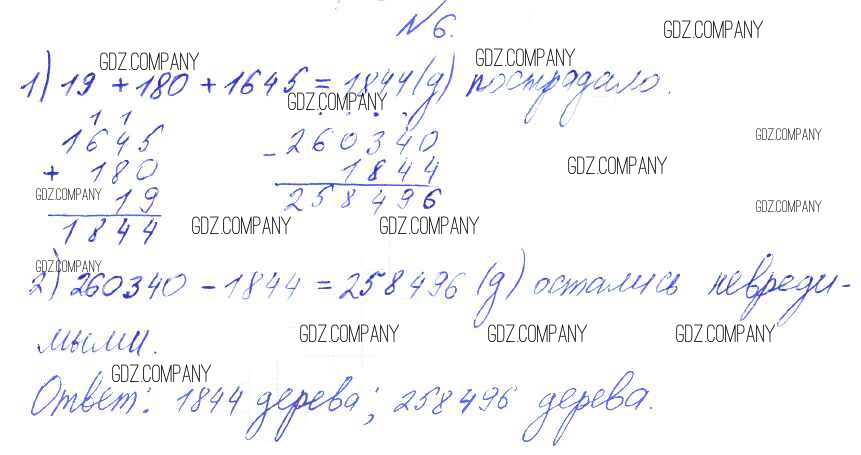 № 6.
GDZ.COMPANY
GDZ.COMPANY GDZ.COMPANY
1) 19 + 180 + 1645 = 1844 (д) пострадало.
GDZ.COMPANY
1 1
1645 260340
+ 180 - 1844
19 258496
1844
GDZ.COMPANY
GDZ.COMPANY
GDZ.COMPANY
GDZ.COMPANY
GDZ.COMPANY GDZ.COMPANY
GDZ.COMPANY
2) 260340 - 1844 = 258496 (д) остались невреди-
мыми.
GDZ.COMPANY GDZ.COMPANY GDZ.COMPANY
GDZ.COMPANY
Ответ: 1844 дерева; 258496 дерева.